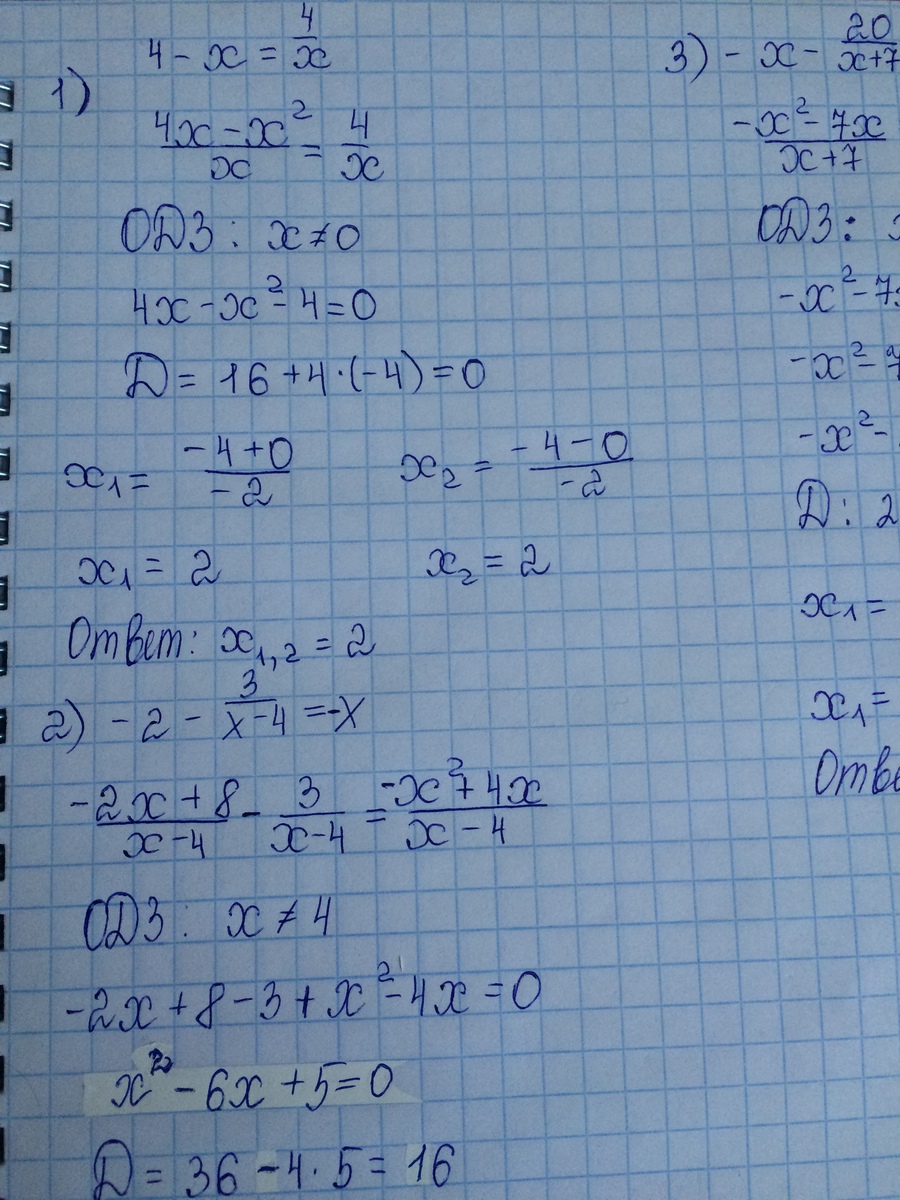 1) 4 - x = 4/x
(4x - x²)/x = 4/x
ОДЗ: x ≠ 0
4x - x² - 4 = 0
D = 16 + 4·(-4) = 0
x₁ = (-4+0)/-2 x₂ = (-4-0)/-2
x₁ = 2 x₂ = 2
Ответ: x₁,₂ = 2
2) -2 - 3/(x-4) = -x
(-2x+8)/(x-4) - 3/(x-4) = (-x²+4x)/(x-4)
ОДЗ: x ≠ 4
-2x + 8 - 3 + x² - 4x = 0
x² - 6x + 5 = 0
D = 36 - 4·5 = 16
3) - x - 20/(x+7
(-x² - 7x)/(x+7)
ОДЗ:
-x² - 7
-x² - 7
-x² -
D: 2
x₁ =
x₁ =
Отве